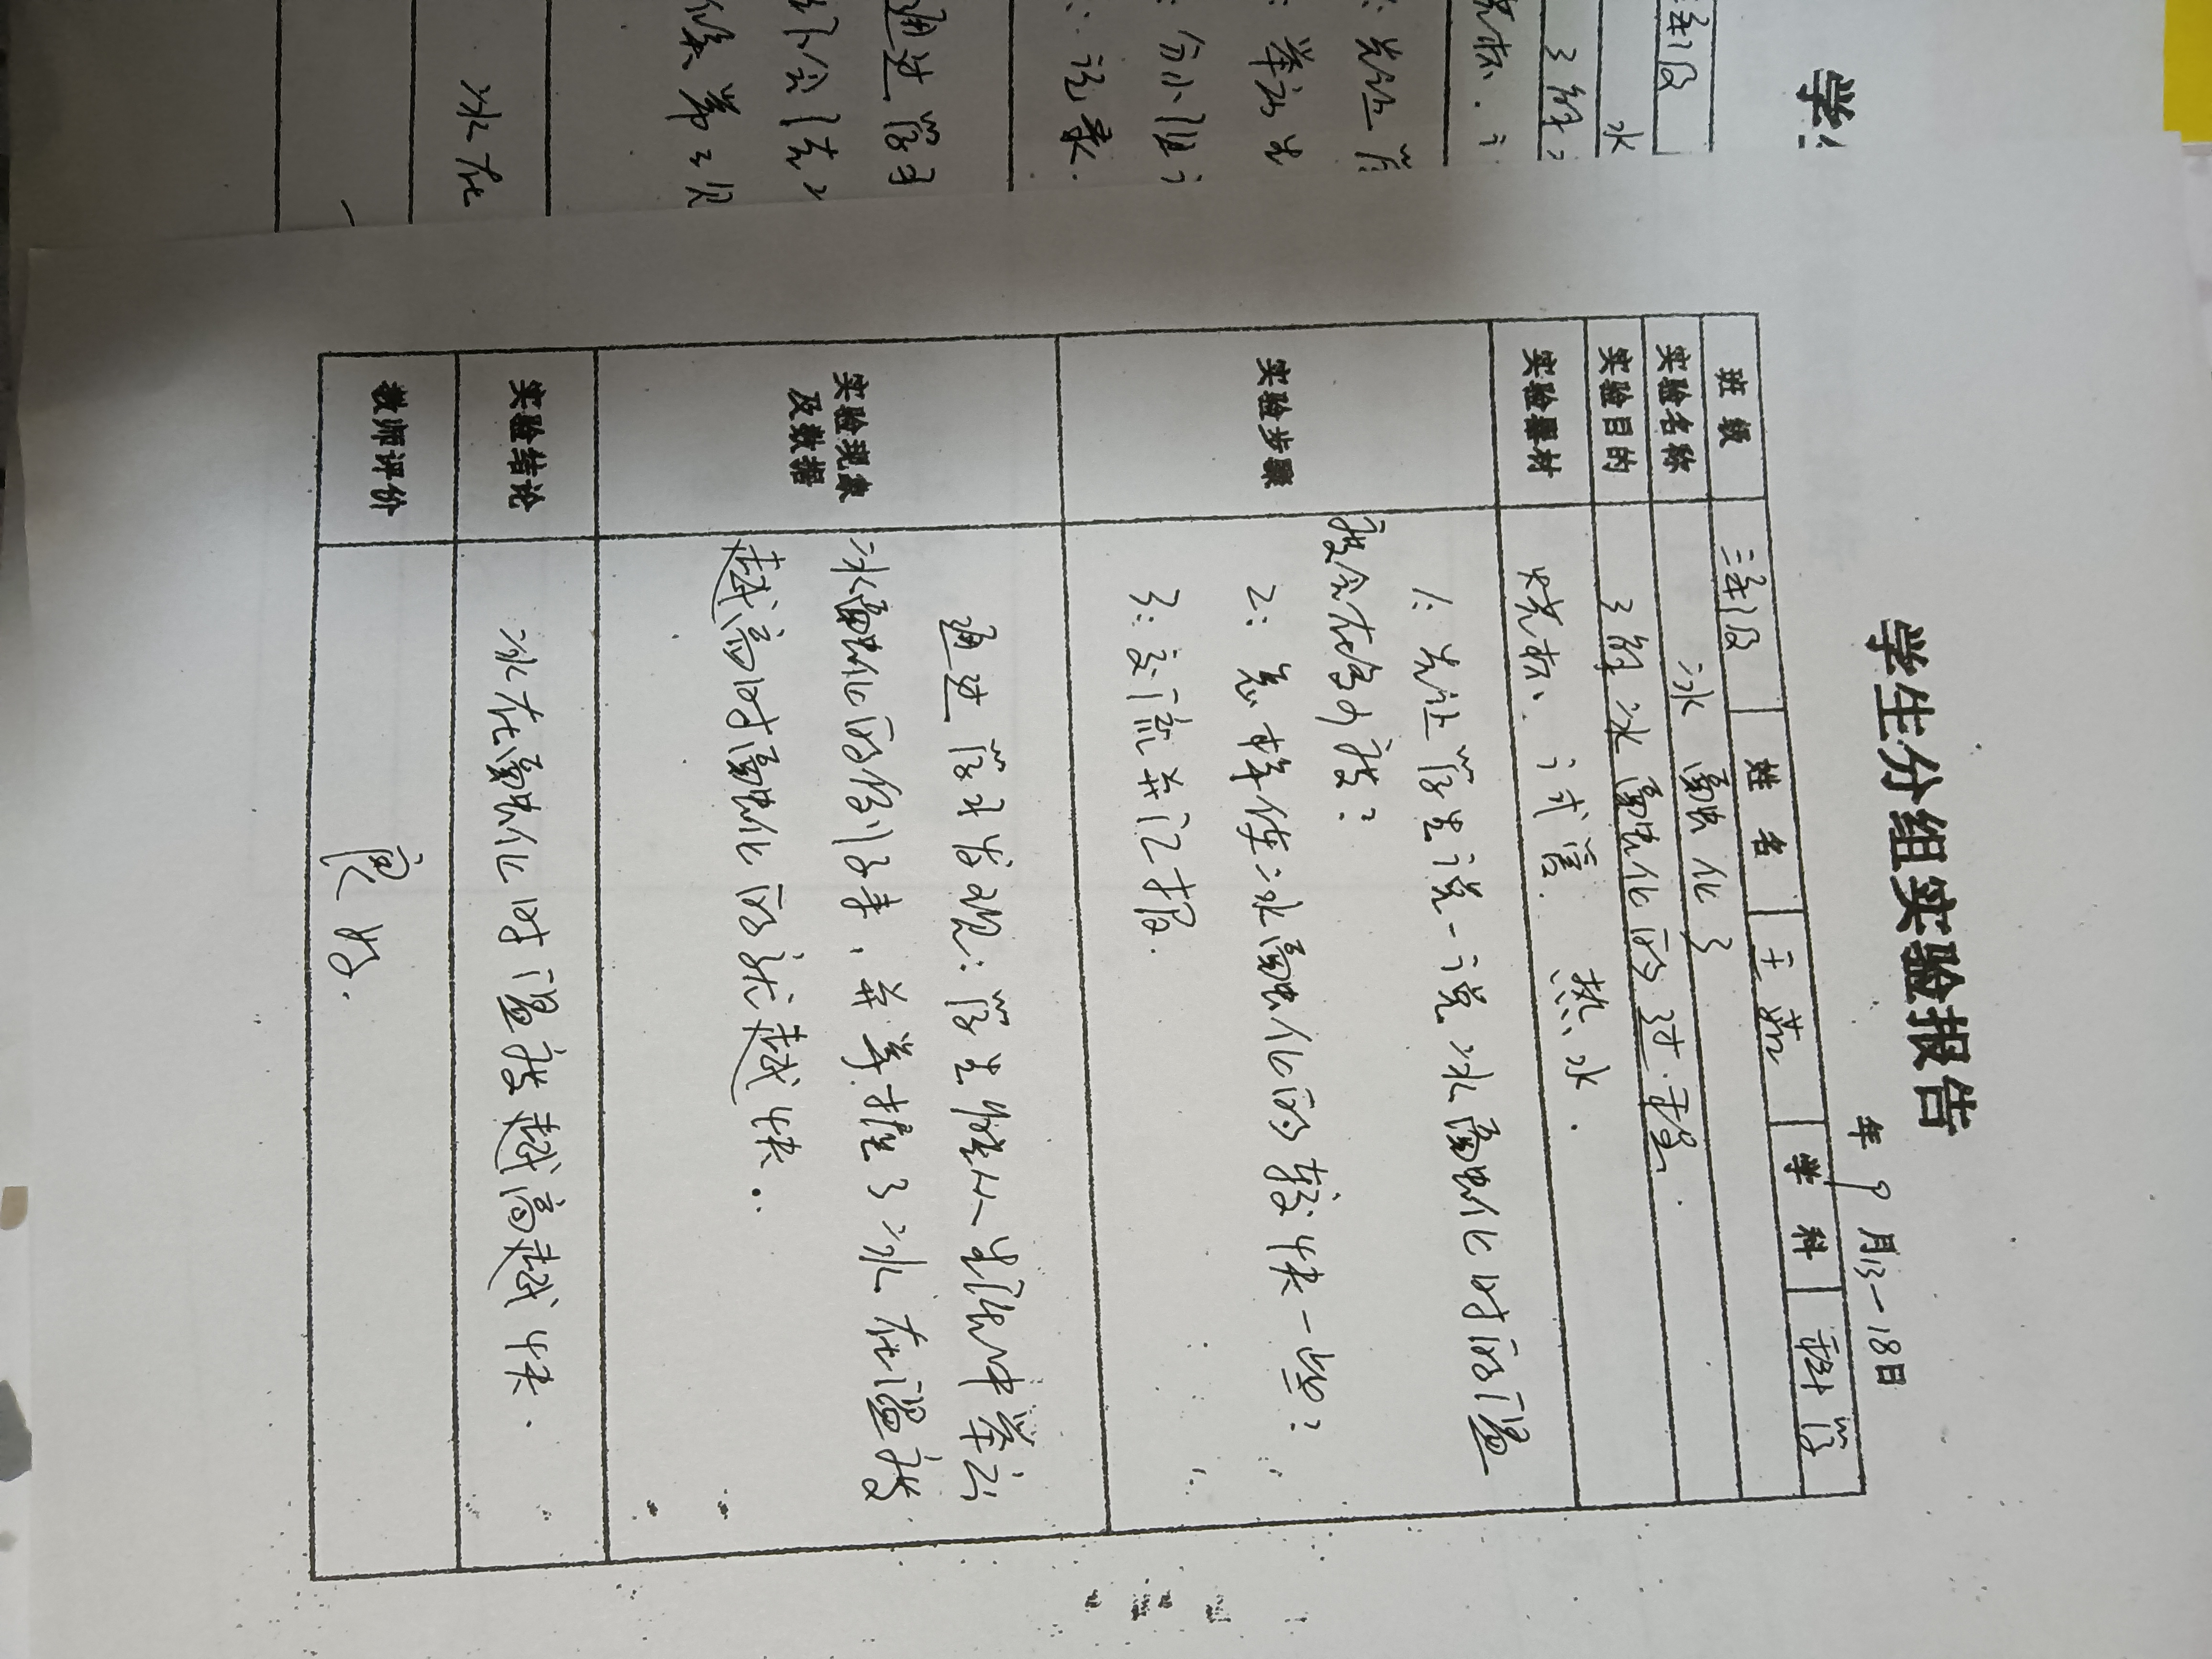 学生分组实验报告
年 9 月13-18日
班级 三年级 姓名 学科 科学
实验名称 冰融化了
实验目的 了解冰融化的过程.
实验器材 烧杯、试管. 热水.
实验步骤
1: 先让学生说一说冰融化时的温
度会在多少度?
2: 怎样使冰融化的较快一些?
3: 交流并汇报.
实验现象
及数据
通过学习发现:学生能从生活中举例
冰融化的例子, 并掌握了冰在温度
越高时融化的就越快.
实验结论 冰在融化时温度越高越快.
教师评价 良好.
学生
年级
水
了解
烧杯.
: 先让学
: 举
: 分小组
: 记录.
通过学
第二次
冰在